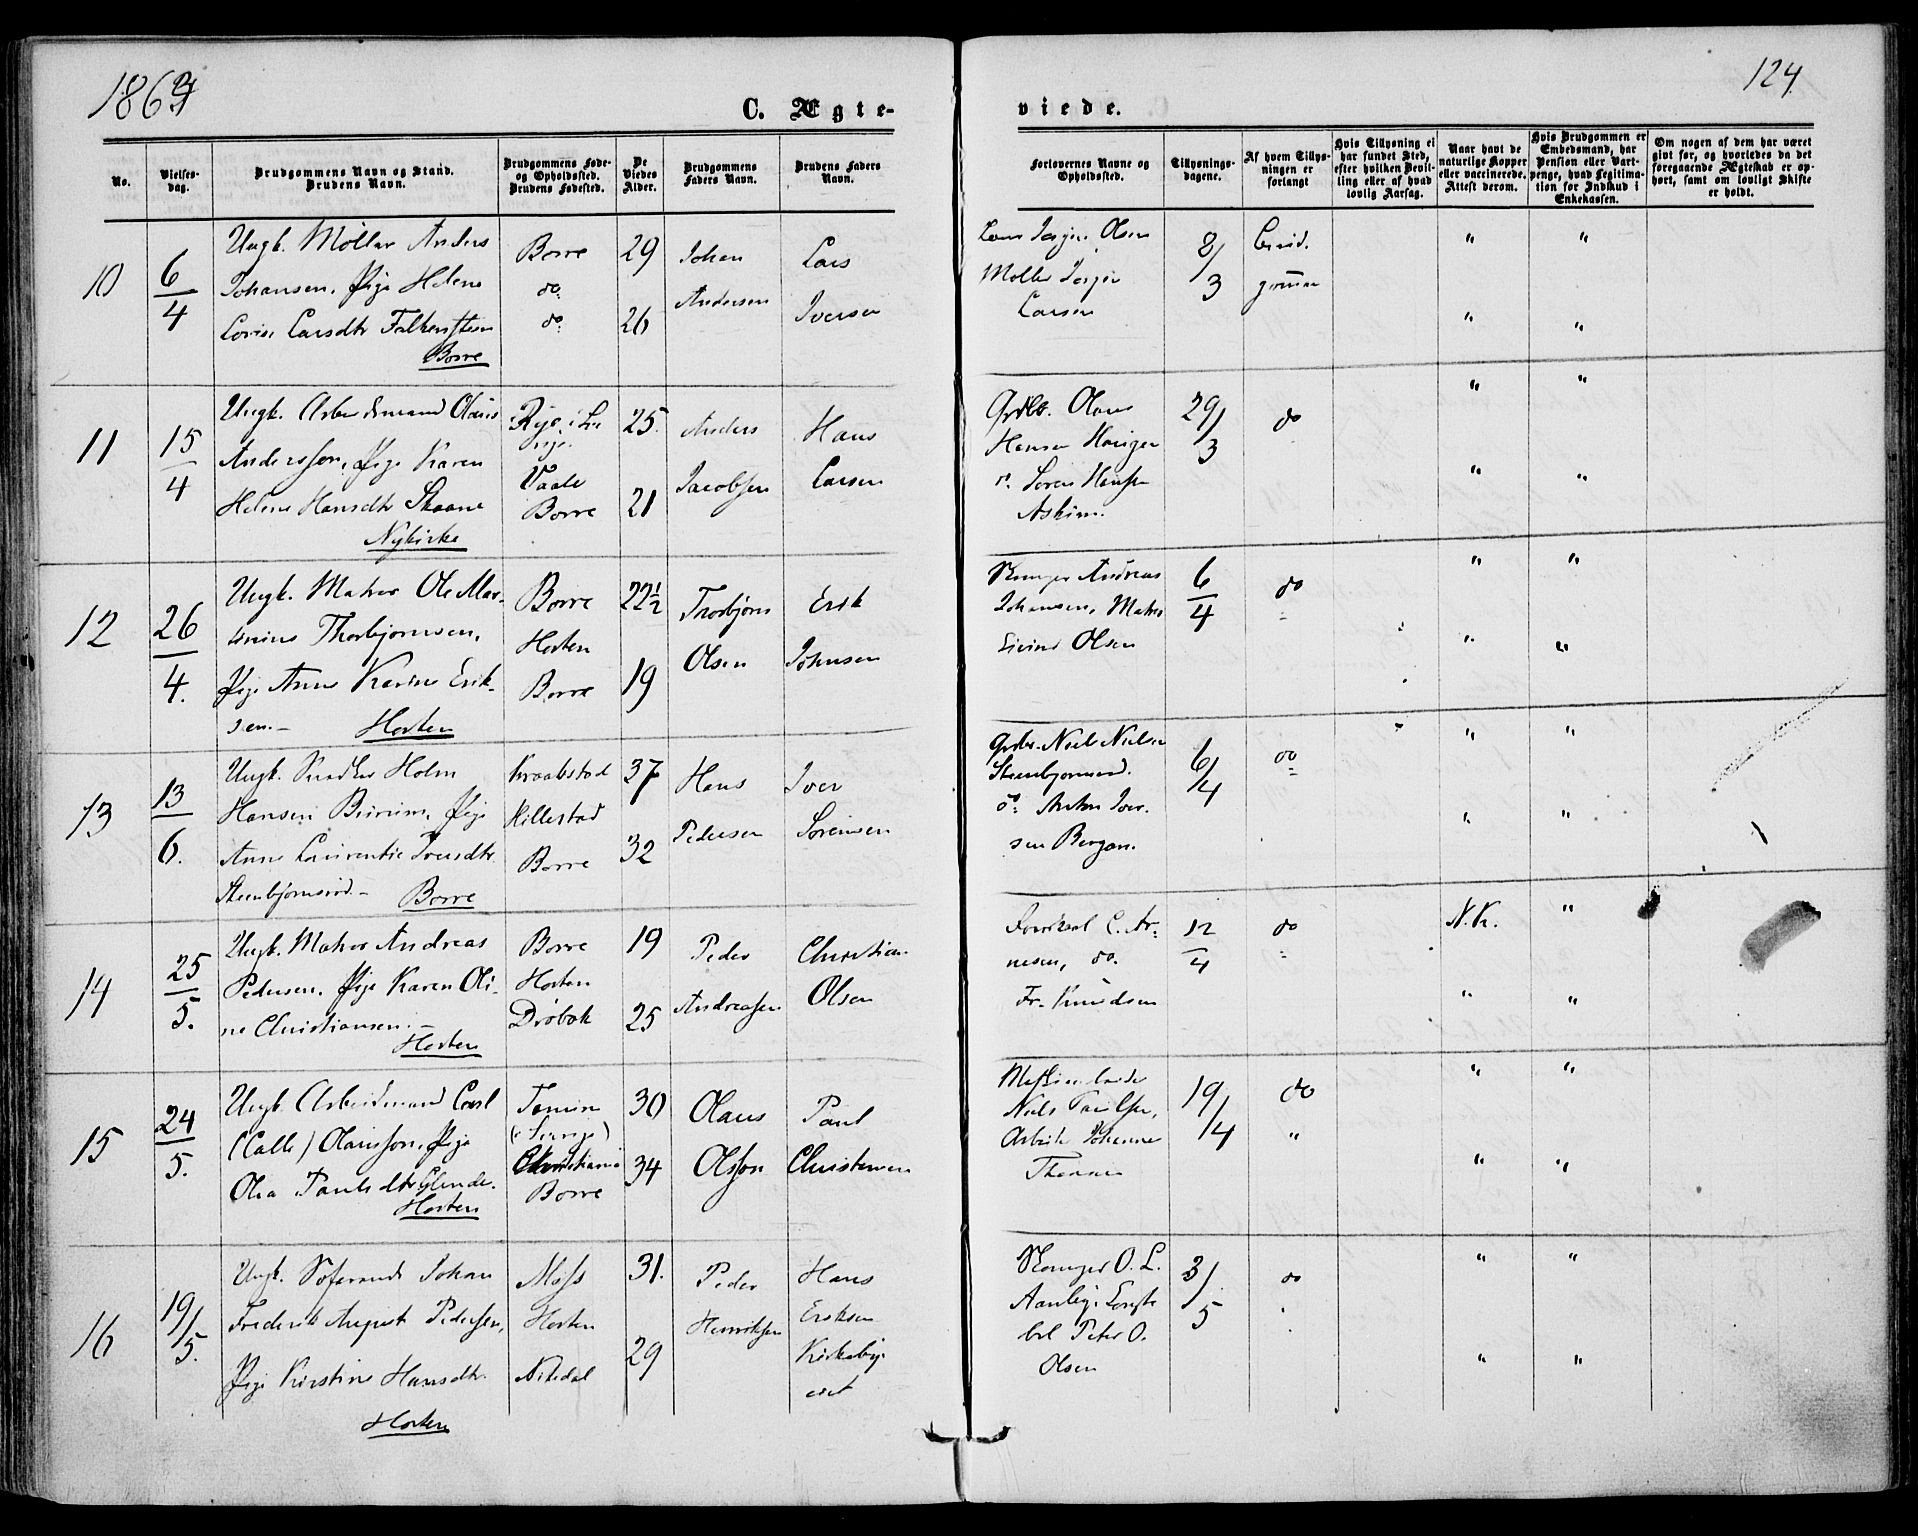 1864
124
C. Ægte-
viede.
No.
Vielses-
dag.
Brudgommens Navn og Stand.
Brudens Navn.
Brudgommens Føde-
og Opholdssted.
Brudens Fødested.
De
Viedes
Alder.
Brudgommens
Faders Navn.
Brudens Faders
Navn.
Forlovernes Navne og
Opholdssted.
Tillysnings-
dagene.
Af hvem Tillys-
ningen er
forlangt
Hvis Tillysning ei
har fundet Sted,
efter hvilken Bevil-
ling eller af hvad
lovlig Aarsag.
Naar havt de
naturlige Kopper
eller vaccinerede.
Attest derom.
Hvis Brudgommen er
Embedsmand, har
Pension eller Vart-
penge, hvad Legitima-
tion for Indskud i
Enkekassen.
Om nogen af dem har været
gift før, og hvorledes da det
foregaaende Ægteskab er op-
hørt, samt om lovligt Skifte
er holdt.
10
6/4
Ungk. Møller Anders
Johansen, Pige Helene
Lovise Larsdtr Falkensteen
Borre
Borre
do
do
29
26
Johan
Andersen
Lars
Iversen
Jørgen Olsen
Møller Jørgen
Larsen
8/3
Brud-
gommen
" "
" "
11
15/4
Ungk. Arbeidsmand Olaus
Andersson, Pige Karen
Helene Hansdtr Skaane
Nykirke
Rye i
Vaale
Borre
25.
21
Anders
Jacobsen
Hans
Larsen
Grdbr. Olaus
Hansen
Søren Hansen
Askim.
29/3
do
" "
" "
12
26/4.
Ungk. Matros Ole Mar-
Thorbjørnsen,
Pige Anne Karine Erik-
sen.-
Horten
Borre
Horten
Borre
22½
19
Thorbjørn
Olsen
Erik
Johnsen
Andreas
Johansen, Matros
Eivind Olsen
6/4
do
" "
" "
13
13/6.
Ungk. Snedker Holm
Hansen, Pige
Anne Laurentie Iversdtr
Steenbjørnsrød -
Borre
Kraakstad
Hillestad
Borre
37
32
Hans
Pedersen
Iver
Sørensen
Grdbr. Niels Nielsen
Steenbjørnsrød.
do Anton Iver-
sen Bergan.
6/4
do
" "
" "
14
25/5.
Ungk. Matros Andreas
Pedersen, Pige Karen Oli-
ne Christiansen. -
Horten
Borre
Horten
Drøbak
19
25
Peder
Andreassen
Christian
Olsen
C. Ar-
nesen, do.
Fr. Knudsen
12/4
do
N.K. "
" "
15
24/5.
Ungk. Arbeidsmand Carl
(Calle) Olausson, Pige
Olea Paulsdtr Glende.
Horten
(i Sverige)
Christiania
Borre
30
34
Olaus
Olsson
Paul
Christensen
Niels Paulsen,
Arbeider Johannes
19/4
do
"
" "
" "
16
19/5.
Ungk. Søfarende Johan
Frederik August Pedersen,
Pige Kirstine Hansdtr.
Horten
Moss
Horten
Nitedal
31.
29
Peder
Henriksen
Hans
Eriksen
Kirkeby-
eiet
O. L.
Peter O.
Olsen
3/5
do
" "
" "